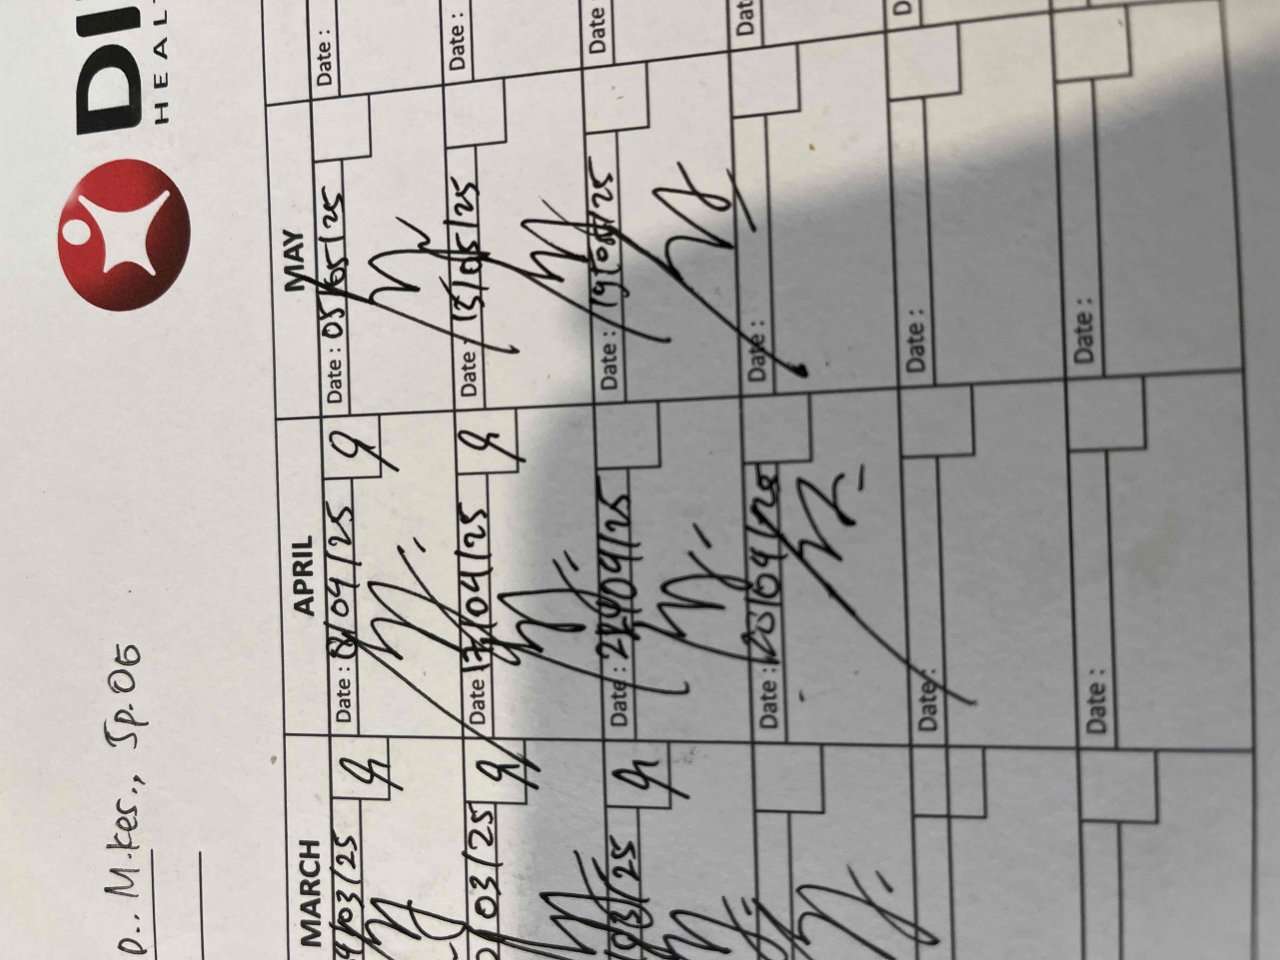 DI
HEAL
p., M.Kes., Sp.OG
MARCH APRIL MAY
/03/25 Date: 8/04/25 Date: 05/05/25 Date:
03/25 Date 17/04/25 Date 13/05/25 Date:
/03/25 Date: 22/04/25 Date: 19/05/25 Date
Date: /04/ Date: Dat
Date: Date: D
Date: Date: